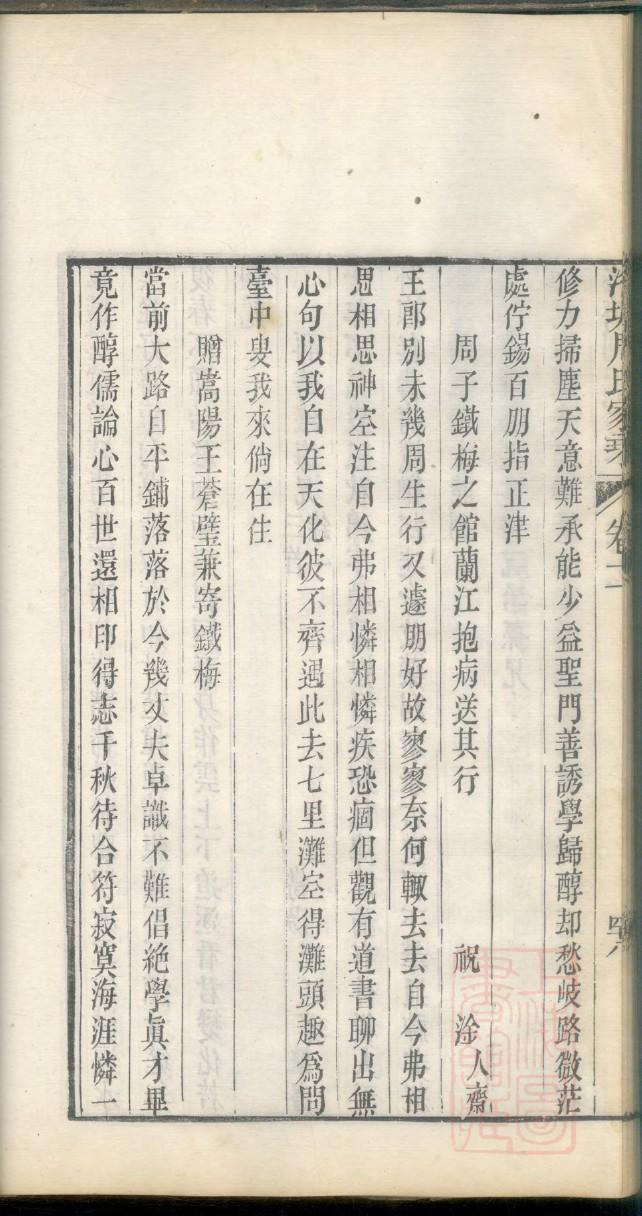 周氏家乘 卷十二
修力掃塵天意難承能少益聖門善誘學歸醇却愁岐路微茫
處佇錫百朋指正津
周子鐵梅之館蘭江抱病送其行 祝 淦人齋
王郎別未幾周生行又遽朋好故寥寥奈何輒去去自今弗相
思相思神空注自今弗相憐相憐疾恐痼但觀有道書聊出無
心句以我自在天化彼不齊遇此去七里灘定得灘頭趣爲問
臺中叟我來倘在住
贈嵩陽王蒼璧兼寄鐵梅
當前大路自平鋪落落於今幾丈夫卓識不難倡絶學眞才畢
竟作醇儒論心百世還相印得志千秋待合符寂寞海涯憐一